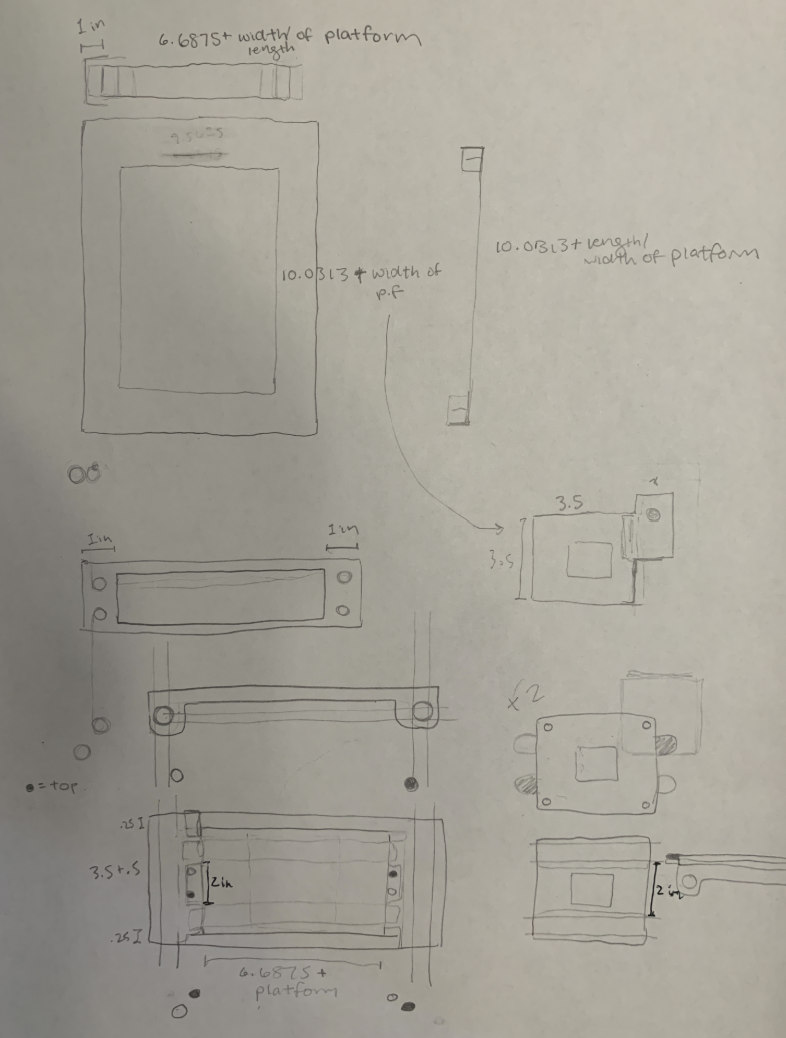 1 in
6.6875+ width/ of platform
length
10.0313 + width of
p.f
10.0313 + length/
width of platform
1in
1in
3.5
x
3.5
x2
●=top
.25 I
3.5+.5
2in
2in
.25 I
6.6875 +
platform